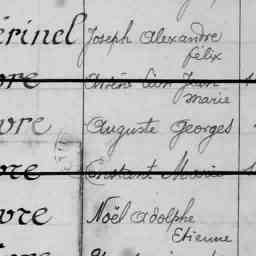 érinel Joseph Alexandre
félix
vre Arsène Léon Jean
marie
vre Auguste Georges
vre Constant Marie
vre Noël Adolphe
Etienne